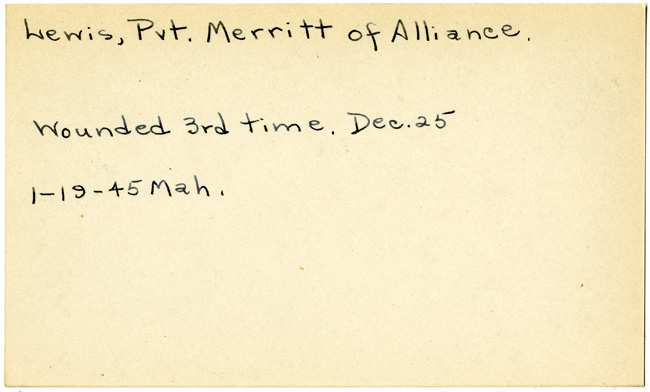 Lewis, Pvt. Merritt of Alliance.
Wounded 3rd time. Dec. 25
1-19-45 Mah.